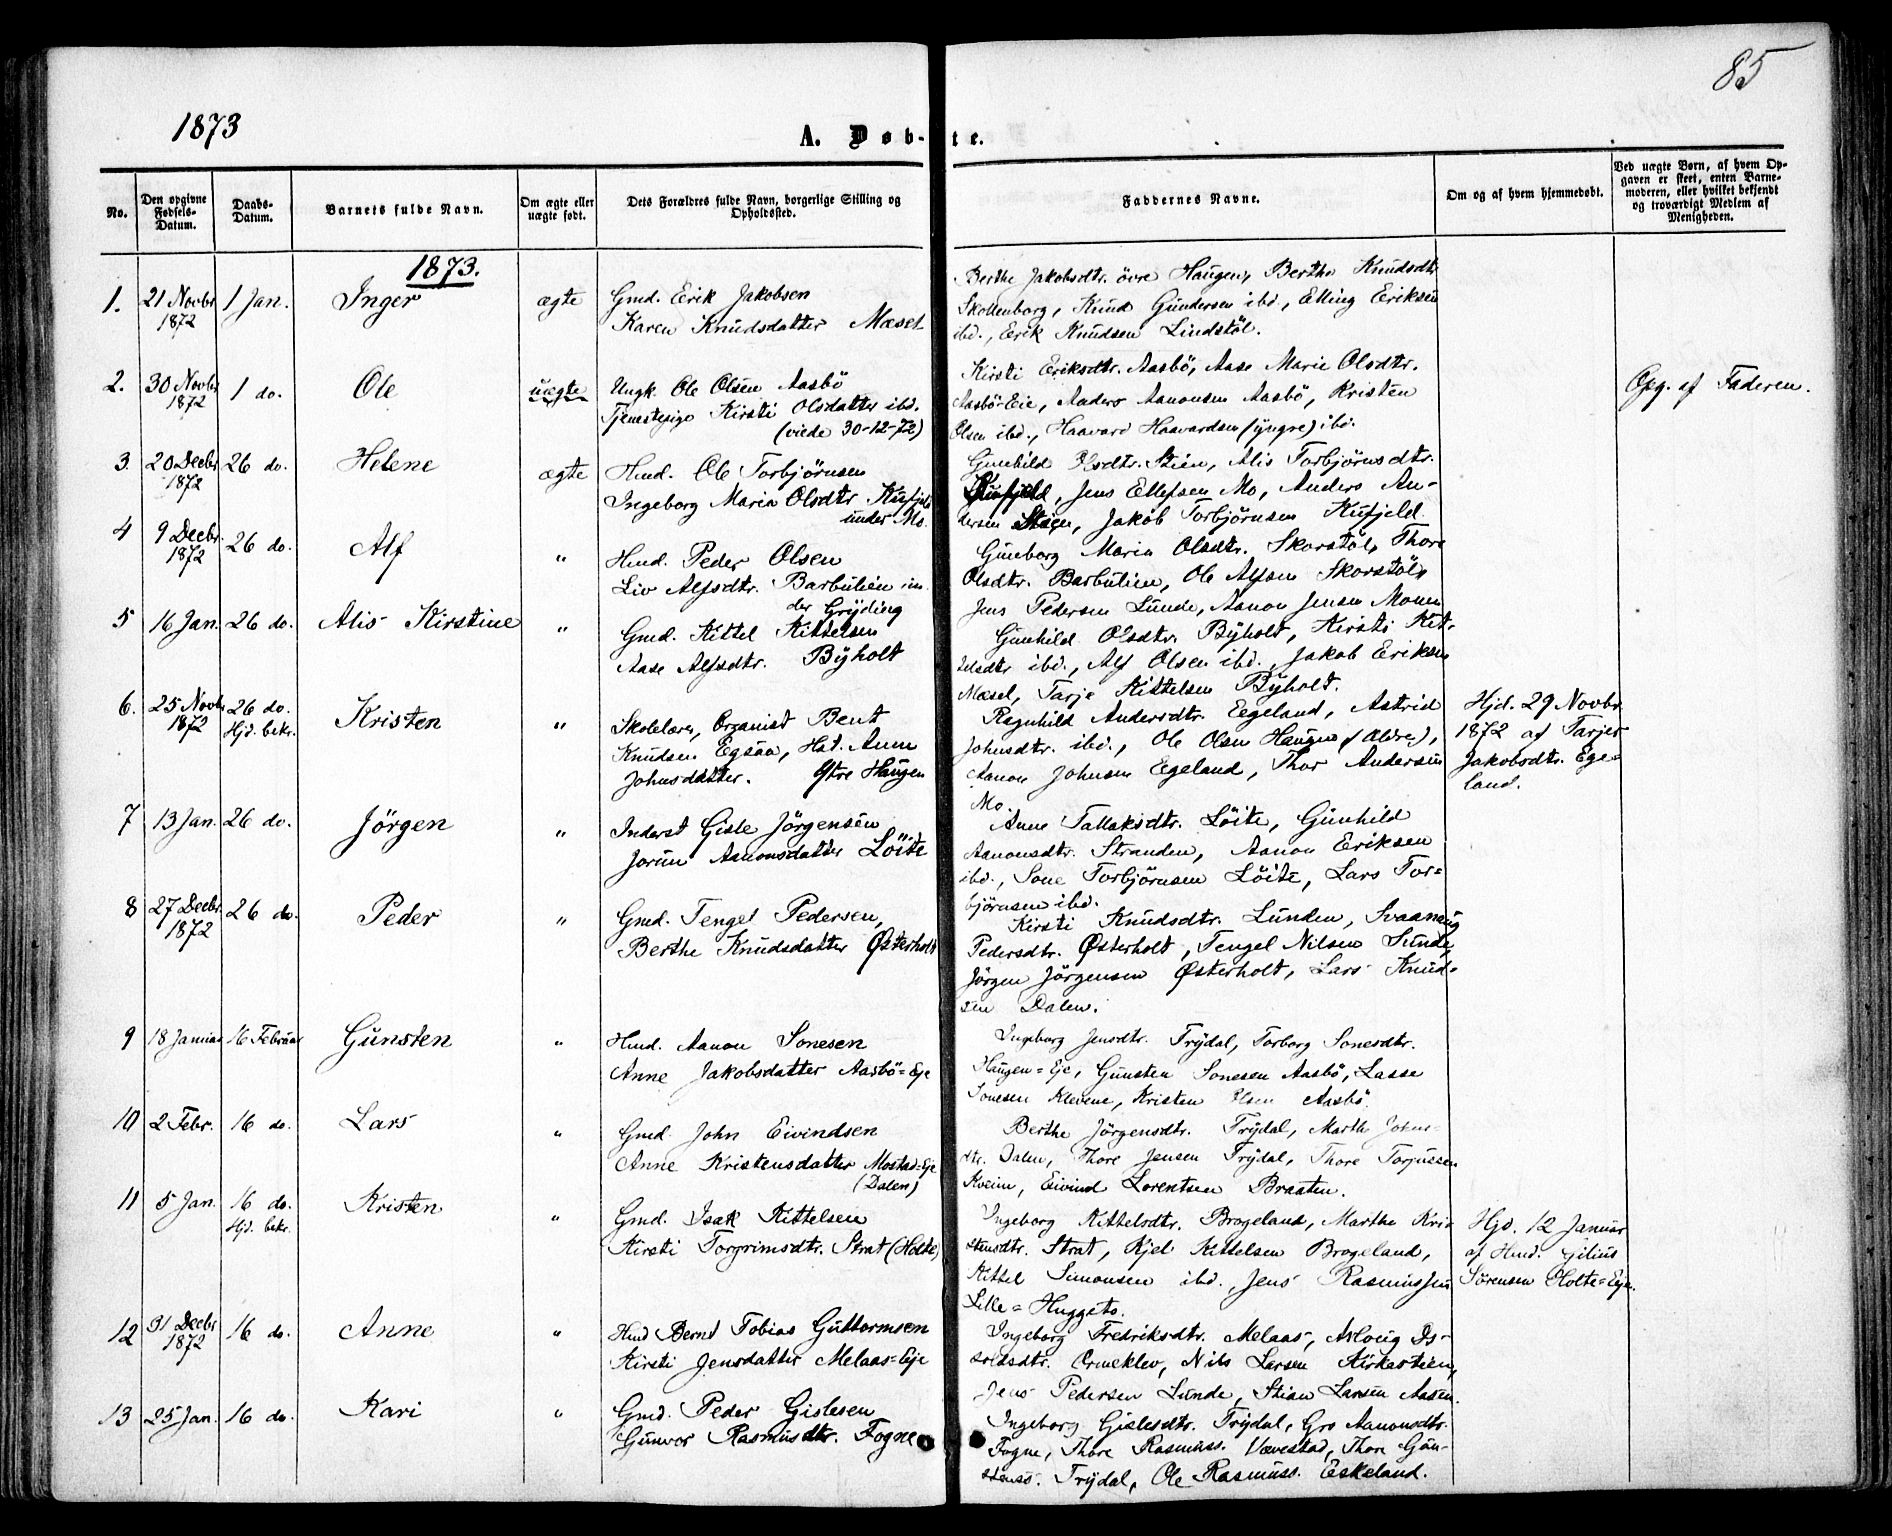 85
1873
A. Døb-te.
No.
Den opgivne Fødsels-Datum.
Daabs-Datum.
Barnets fulde Navn.
Om ægte eller uægte født.
Dets Forældres fulde Navn, borgerlige Stilling og Opholdssted.
Faddernes Navne.
Om og af hvem hjemmedøbt.
Ved uægte Børn, af hvem Opgaven er skeet, enten Barnemoderen, eller hvilket bekjendt og troværdigt Medlem af Menigheden.
1873.
1. 21 Novbr 1872 1 Jan. Inger ægte
Gmd. Erik Jakobsen
Karen Knudsdatter Mæsel
Berthe Jakobsdtr. övre Haugen, Berthe Knudsdtr
Skottenborg, Knud Gundersen ibd, Elling Eriksen
ibd., Erik Knudsen Lindstöl.
2. 30 Novbr 1872 1 do. Ole uægte
Ungk. Ole Olsen Aasbö
Tjenestepige Kirsti Olsdatter ibd.
(viede 30-12-72)
Kirsti Eriksdtr. Aasbö, Aase Marie Olsdtr.
Aasbö-Eie, Anders Aanonsen Aasbö, Kristen
Olsen ibd., Haavard Haavardsen (yngre) ibd.
Opg. af Faderen.
3. 20 Decbr 1872 26 do. Helene ægte
Hmd. Ole Torbjörnsen
Ingeborg Maria Olsdtr. Kufjeld
under Mo.
Gunhild Olsdtr. Stien, Alis Torbjörnsdtr.
Kufjeld, Jens Ellefsen Mo, Anders An-
dersen Stien, Jakob Torbjörnsen Kufjeld.
4 9 Decbr. 1872 26 do. Alf "
Hmd. Peder Olsen
Liv Alfsdtr. Barbulien un-
der Gryding
Gunborg Maria Olsdtr. Skorstöl, Thore
Olsdtr. Barbulien, Ole Alfsen Skorstöl,
Jens Pedersen Lunde, Aanon Jensen Monen
5 16 Jan. 26 do. Alis Kirstine "
Gmd. Kittel Kittelsen
Aase Alfsdtr. Byholt
Gunhild Olsdtr. Byholt, Kirsti Kit-
telsdtr ibd., Alf Olsen ibd., Jakob Eriksen
Mæsel, Tarje Kittelsen Byholt.
6. 25 Novbr 1872 26 do. Hjd. bekr. Kristen "
Skolelærer, Organist Bent
Knudsen Egsaa, Hst. Anne
Johnsdatter. Ytre Haugen
Ragnhild Andersdtr. Egeland, Astrid
Johnsdtr. ibd., Ole Olsen Haugen (Ældre),
Aanon Johnsen Egeland, Thor Andersen
Mo.
Hjd. 29 Novbr.
1872 af Tarjer
Jakobsdtr. Ege-
land.
7 13 Jan. 26 do. Jörgen "
Inderst Gisle Jörgensen
Jorun Aanonsdatter Löite
Anne Tallaksdtr. Löite, Gunhild
Aanonsdtr. Stranden, Aanon Eriksen
ibd., Sone Torbjörnsen Löite, Lars Tor-
björnsen ibd.
8 27 Decbr. 1872 26 do. Peder "
Gmd. Tengel Pedersen,
Berthe Knudsdatter Østerholt
Kirsti Knudsdtr. Lunden, Svanaug
Pedersdtr. Østerholt, Tengel Nilsen Lunde,
Jörgen Jörgensen Østerholt, Lars Knud-
sen Dalen.
9 18 Januar 16 Februar Gunsten "
Hmd. Aanon Sonesen
Anne Jakobsdatter Aasbö-Eje
Ingeborg Jensdtr. Trydal, Torborg Sonesdtr.
Haugen-Eje, Gunsten Sonesen Aasbö, Lasse
Sonesen Klevene, Kristen Olsen Aasbö.
10 2 Febr. 16 do. Lars "
Gmd. John Eivindsen
Anne Kristensdatter Mostad-Eje
(Dalen)
Berthe Jörgensdtr. Trydal, Marthe Johns-
dtr. Dalen, Thore Jensen Trydal, Thore Torjussen
Kveim, Eivind Lorentsen Braaten.
11 5 Jan. 16 do. Hjd. bekr. Kristen "
Gmd. Isak Kittelsen
Kirsti Torgrimsdtr. Strat (Holte)
Ingeborg Kittelsdtr. Brageland, Marthe Kri-
stensdtr. Strat, Kjel Kittelsen Brogeland,
Kittel Simonsen ibd. Jens Rasmussen
Lille-Huggeto.
Hjd. 12 Januar
af Hmd. Gilius
Sörensen Holte-Eje.
12 31 Decbr 1872 16 do. Anne "
Hmd Bernt Tobias Guttormsen
Kirsti Jensdatter Melaas-Eje
Ingeborg Fredriksdtr. Melaas, Asloug Os-
soldsdtr. Ormeklev, Nils Larsen Kirkestien,
Jens Pedersen Lunde, Stian Larsen Aasen.
13 25 Jan. 16 do. Kari "
Gmd. Peder Gislesen
Gunvor Rasmusdtr. Fogne
Ingeborg Gislesdtr. Trydal, Gro Aanonsdtr.
Fogne, Thore Rasmuss. Vævestad, Thore Gun-
stenss. Trydal, Ole Rasmuss. Eskeland.